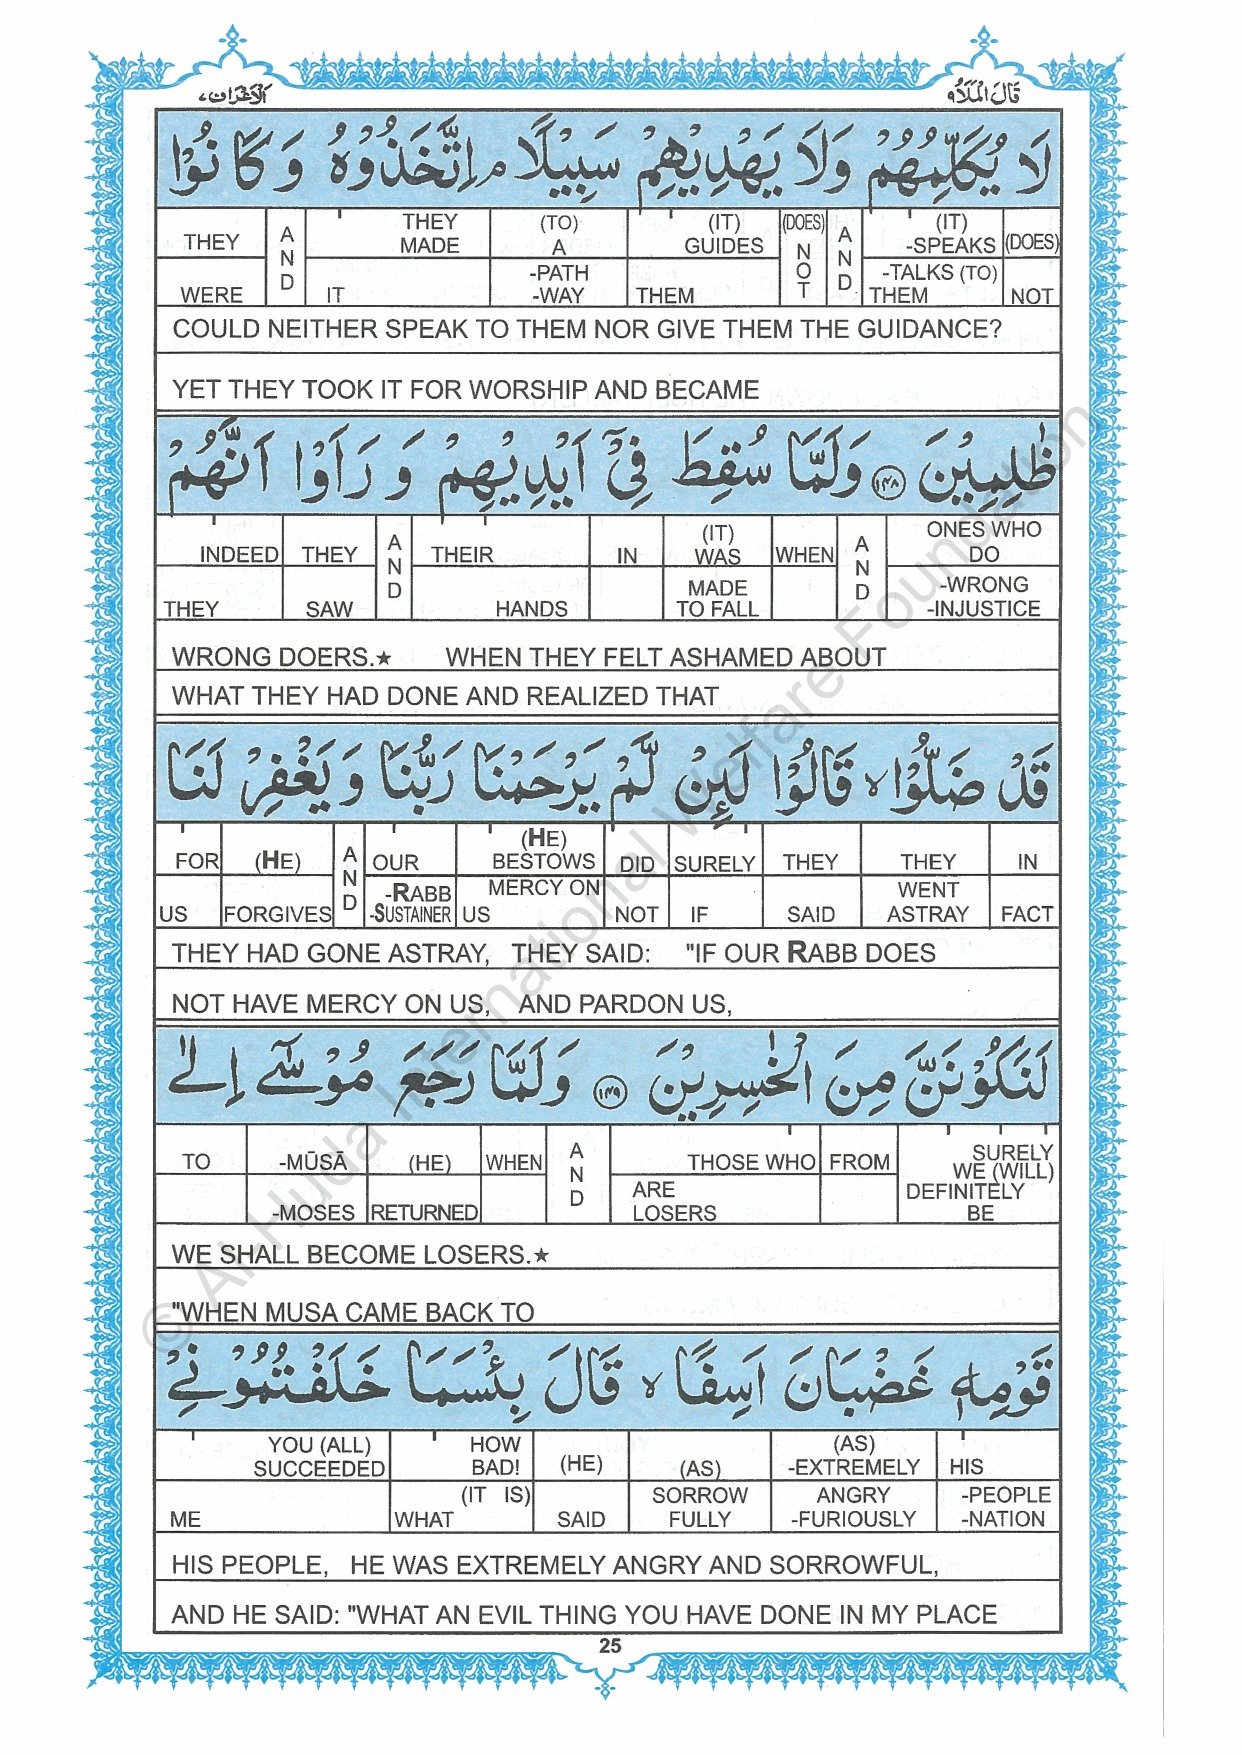 الاعراف ٧
قال الملا ٩
لَا يُكَلِّمُهُمْ وَلَا يَهْدِيْهِمْ سَبِيْلًا ۘ اِتَّخَذُوْهُ وَ كَانُوْا
THEY WERE | AND | THEY MADE IT | (TO) A -PATH -WAY | (IT) GUIDES THEM | (DOES) NOT | AND | (IT) -SPEAKS -TALKS (TO) THEM | (DOES) NOT
COULD NEITHER SPEAK TO THEM NOR GIVE THEM THE GUIDANCE?
YET THEY TOOK IT FOR WORSHIP AND BECAME
ظٰلِمِيْنَ ١٤٨ وَلَمَّا سُقِطَ فِيْۤ اَيْدِيْهِمْ وَ رَاَوْا اَنَّهُمْ
INDEED THEY | THEY SAW | AND | THEIR HANDS | IN | (IT) WAS MADE TO FALL | WHEN | AND | ONES WHO DO -WRONG -INJUSTICE
WRONG DOERS.★ WHEN THEY FELT ASHAMED ABOUT
WHAT THEY HAD DONE AND REALIZED THAT
قَدْ ضَلُّوْا ۙ قَالُوْا لَئِنْ لَّمْ يَرْحَمْنَا رَبُّنَا وَ يَغْفِرْ لَنَا
FOR US | (HE) FORGIVES | AND | OUR -RABB -SUSTAINER | (HE) BESTOWS MERCY ON US | DID NOT | SURELY IF | THEY SAID | THEY WENT ASTRAY | IN FACT
THEY HAD GONE ASTRAY, THEY SAID: "IF OUR RABB DOES
NOT HAVE MERCY ON US, AND PARDON US,
لَنَكُوْنَنَّ مِنَ الْخٰسِرِيْنَ ١٤٩ وَلَمَّا رَجَعَ مُوْسٰۤى اِلٰى
TO | -MŪSĀ -MOSES | (HE) RETURNED | WHEN | AND | THOSE WHO ARE LOSERS | FROM | SURELY WE (WILL) DEFINITELY BE
WE SHALL BECOME LOSERS.★
"WHEN MUSA CAME BACK TO
قَوْمِهٖ غَضْبَانَ اَسِفًا ۙ قَالَ بِئْسَمَا خَلَفْتُمُوْنِيْ
YOU (ALL) SUCCEEDED ME | HOW BAD! (IT IS) WHAT | (HE) SAID | (AS) SORROW FULLY | (AS) -EXTREMELY ANGRY -FURIOUSLY | HIS -PEOPLE -NATION
HIS PEOPLE, HE WAS EXTREMELY ANGRY AND SORROWFUL,
AND HE SAID: "WHAT AN EVIL THING YOU HAVE DONE IN MY PLACE
25
© Al-Huda International Welfare Foundation